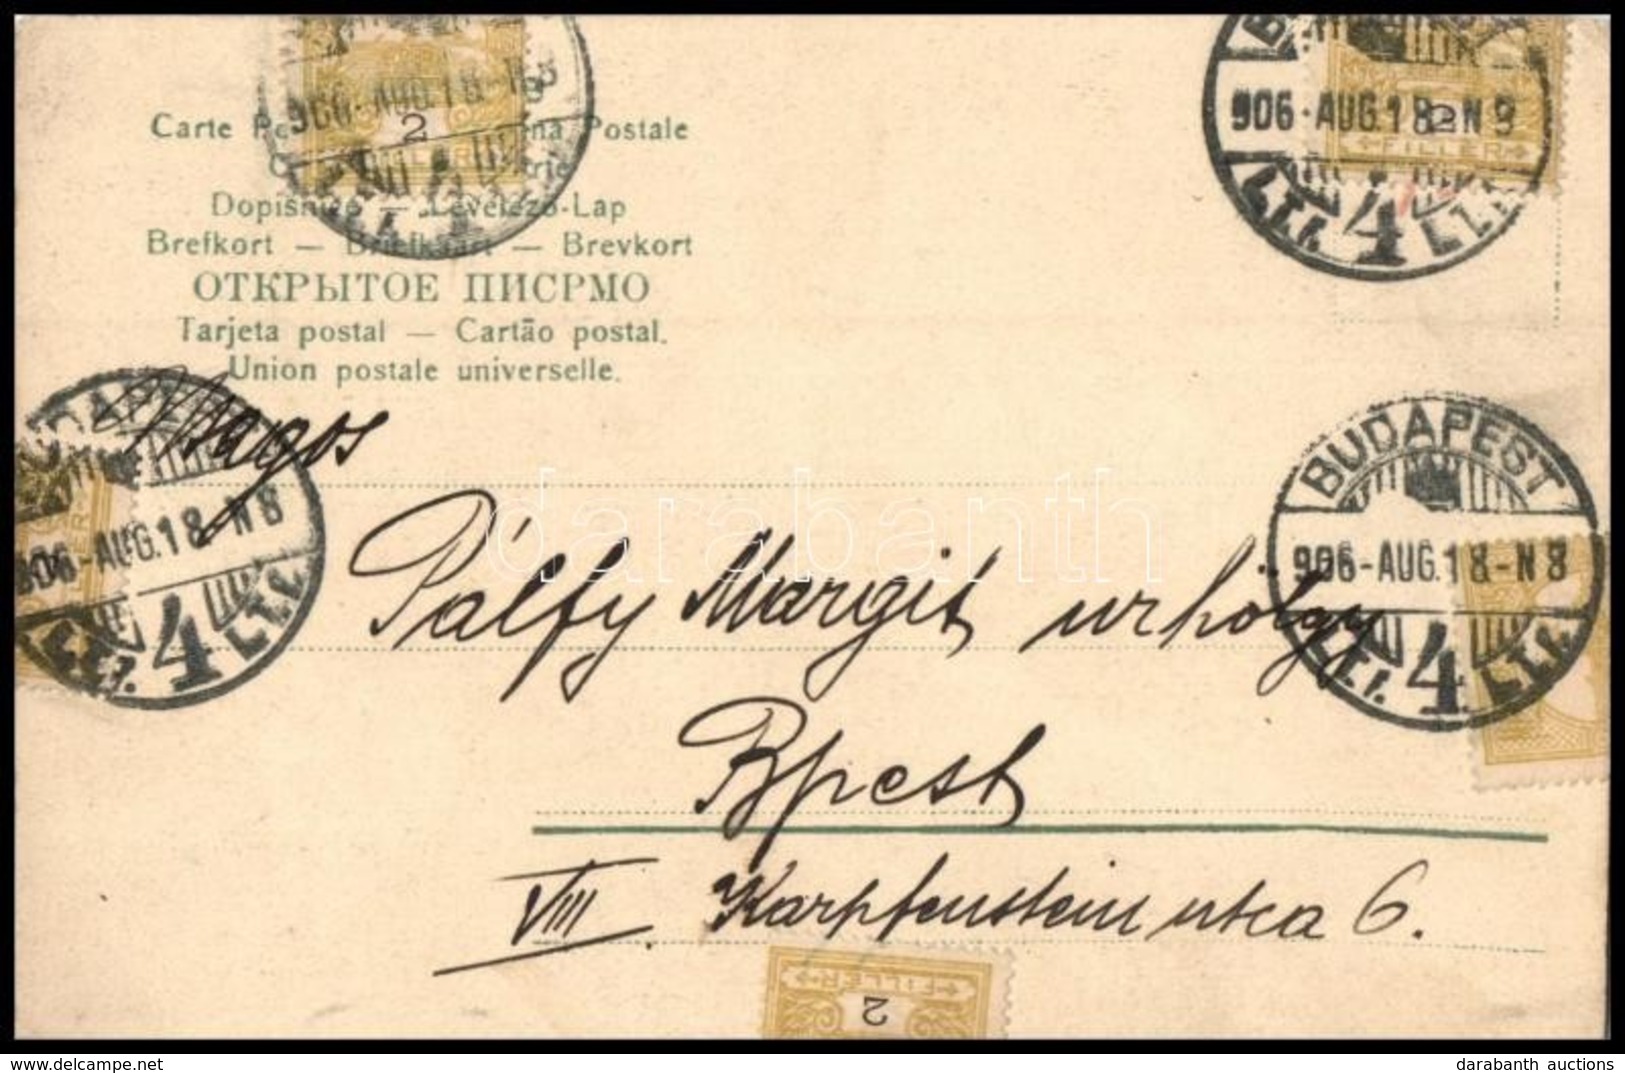 906-AUG.18-N8
2
Carte Postale
Dopisnice — Levelező-Lap
Brefkort — Briefkaart — Brevkort
ОТКРЫТОЕ ПИСРМО
Tarjeta postal — Cartão postal.
Union postale universelle.
906-AUG.18-N8
2
FILLER
4
Nagys
906-AUG.18-N8
4
BUDAPEST
906-AUG.18-N8
4
darabanth
Pálfy Margit urhölgy
Bpest
VIII. Karpfenstein utca 6.
FILLER
2
delcampe.net
darabanth auctions